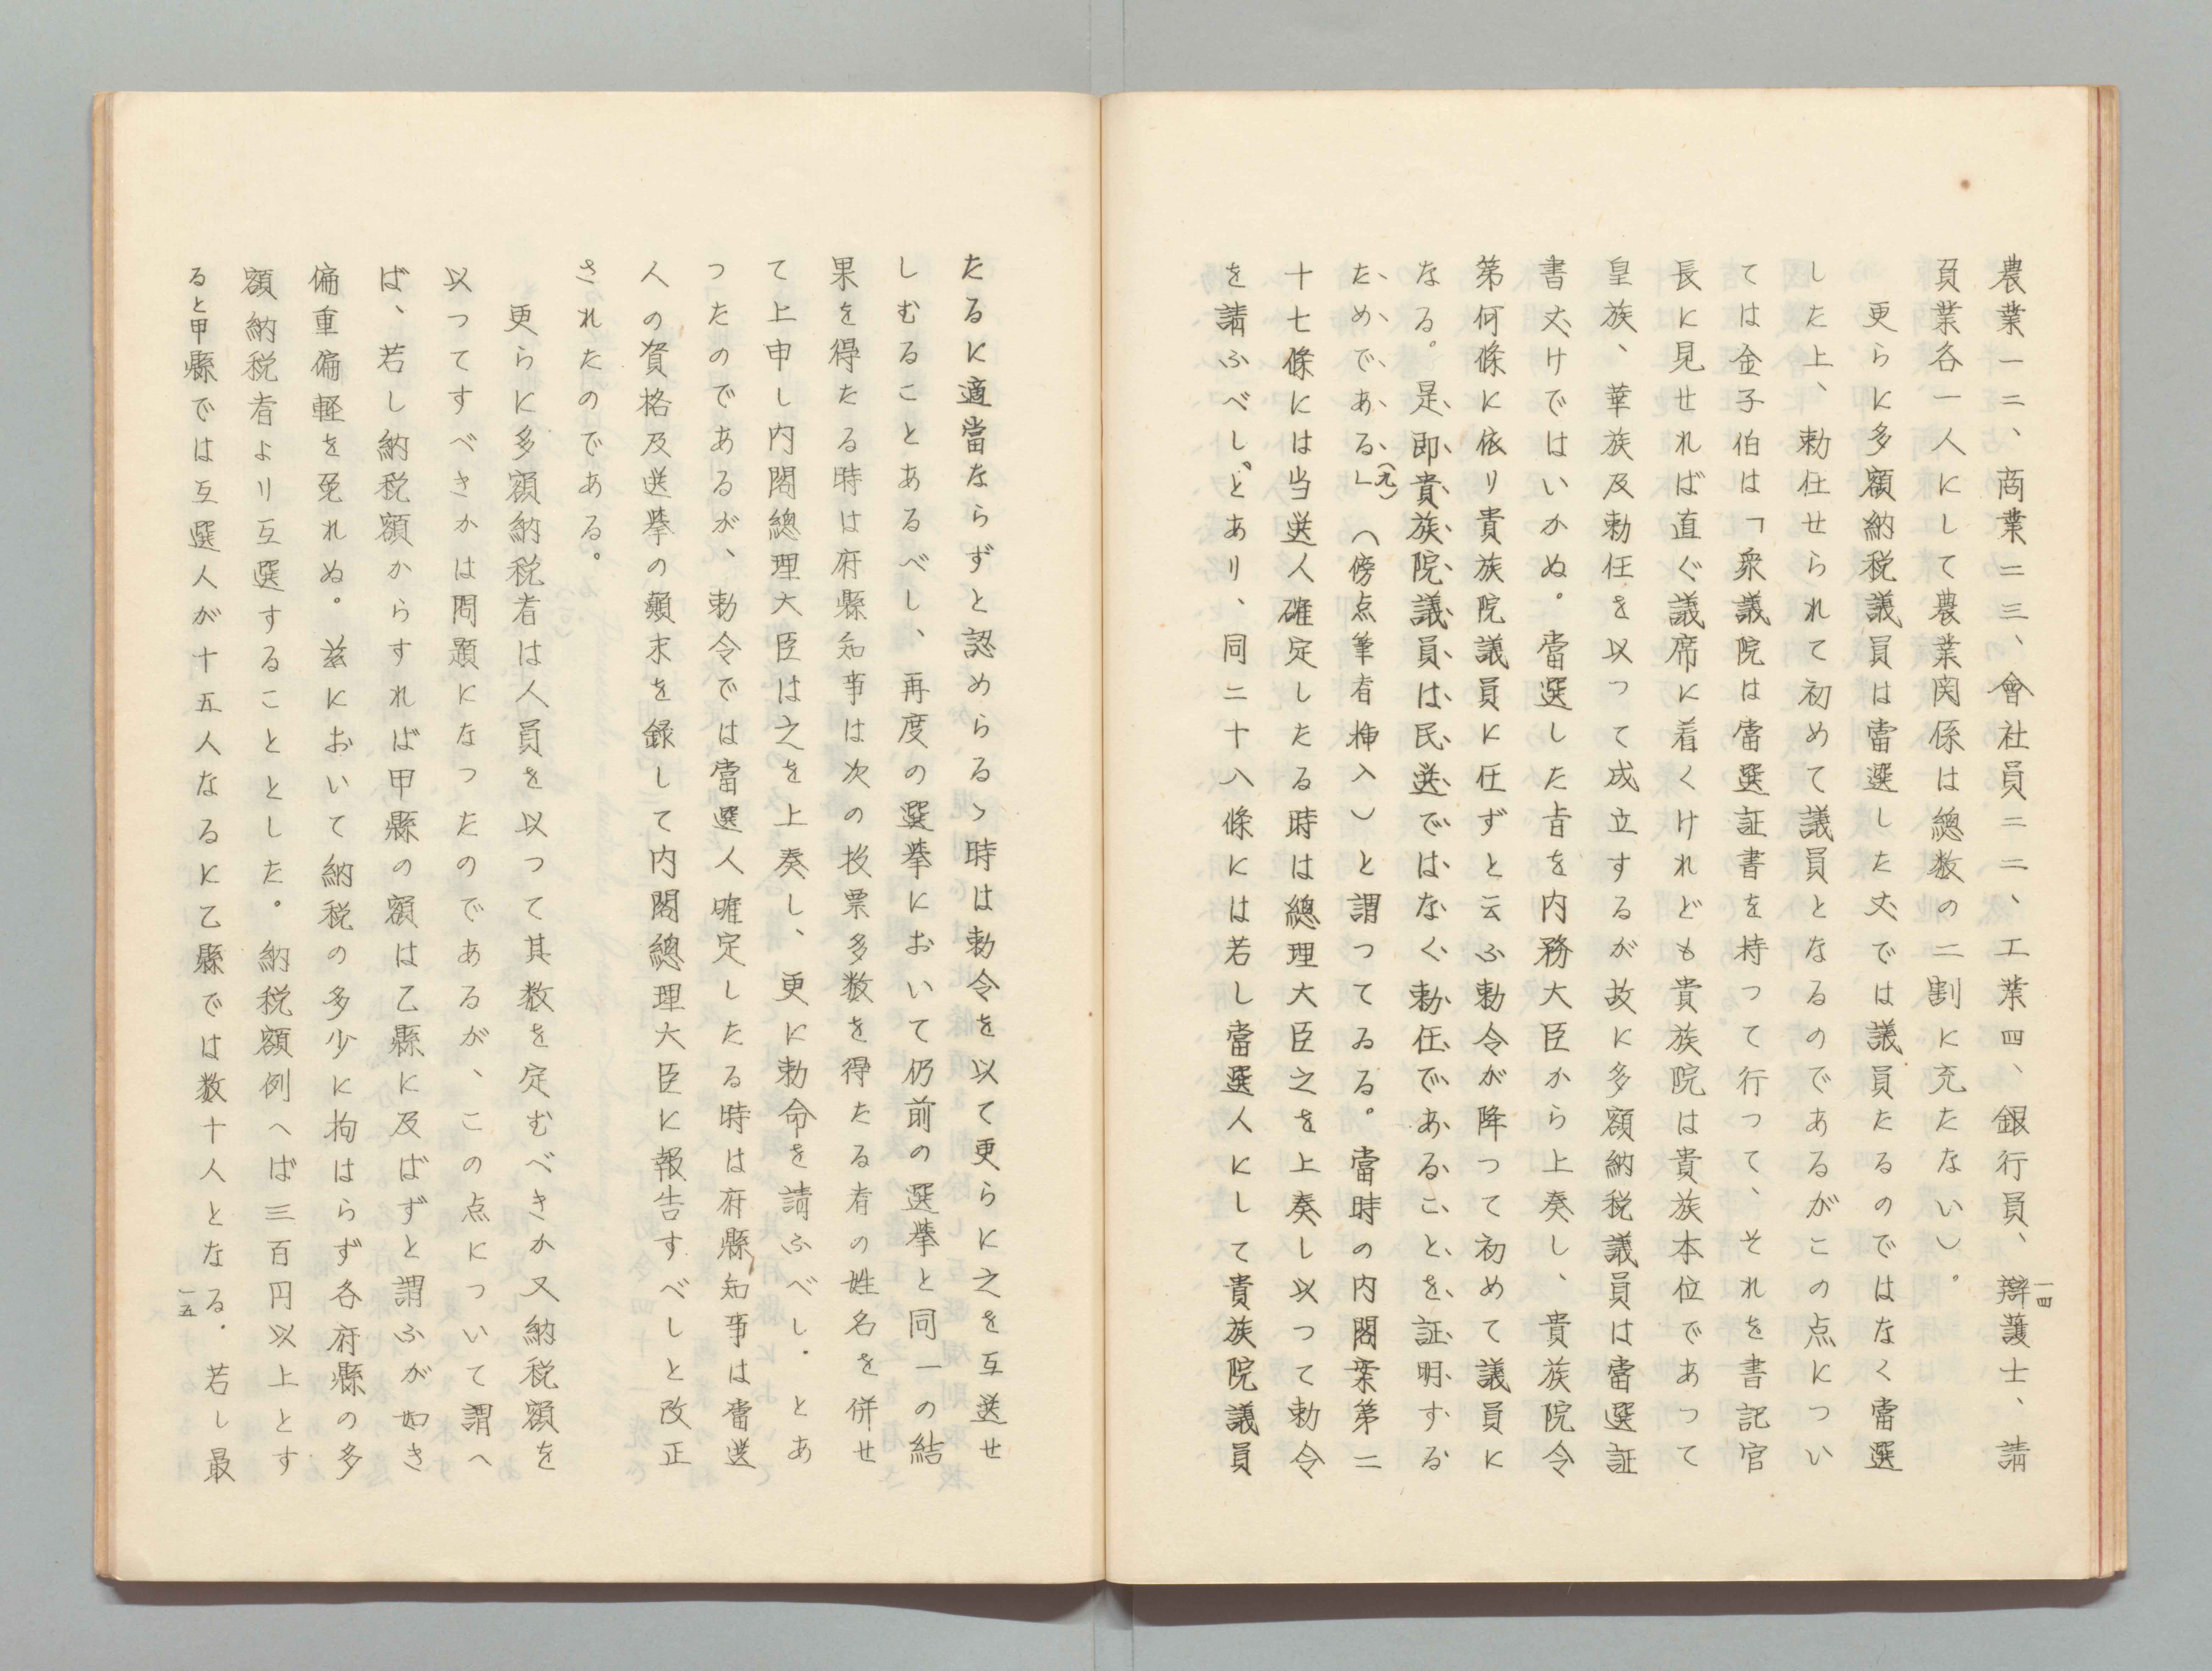 農業一二、商業二三、會社員二二、工業四、銀行員、辯護士、請
負業各一人にして農業関係は總数の二割に充たない）。
更らに多額納税議員は當選した丈では議員たるのではなく當選
した上、勅任せられて初めて議員となるのであるがこの点につい
ては金子伯は「衆議院は當選証書を持つて行つて、それを書記官
長に見せれば直ぐ議席に着くけれども貴族院は貴族本位であつて
皇族、華族及勅任を以つて成立するが故に多額納税議員は當選証
書丈けではいかぬ。當選した旨を内務大臣から上奏し、貴族院令
第何條に依リ貴族院議員に任ずと云ふ勅令が降つて初めて議員に
なる。是、即貴族院議員は民選ではなく勅任であることを証明する
ためである」（九）（傍点筆者挿入）と謂つてゐる。當時の内閣案第二
十七條には当選人確定したる時は總理大臣之を上奏し以つて勅令
を請ふべし、とあり、同二十八條には若し當選人にして貴族院議員
一四
たるに適當ならずと認めらるゝ時は勅令を以て更らに之を互選せ
しむることあるべし、再度の選挙において仍前の選挙と同一の結
果を得たる時は府縣知事は次の投票多数を得たる者の姓名を併せ
て上申し内閣總理大臣は之を上奏し、更に勅命を請ふべし．とあ
つたのであるが、勅令では當選人確定したる時は府縣知事は當選
人の資格及選挙の顛末を録して内閣總理大臣に報告すべしと改正
されたのである。
更らに多額納税者は人員を以つて其数を定むべきか又納税額を
以つてすべきかは問題になつたのであるが、この点について謂へ
ば、若し納税額からすれば甲縣の額は乙縣に及ばずと謂ふが如き
偏重偏軽を免れぬ。茲において納税の多少に拘はらず各府縣の多
額納税者より互選することとした。納税額例へば三百円以上とす
ると甲縣では互選人が十五人なるに乙縣では数十人となる．若し最
一五